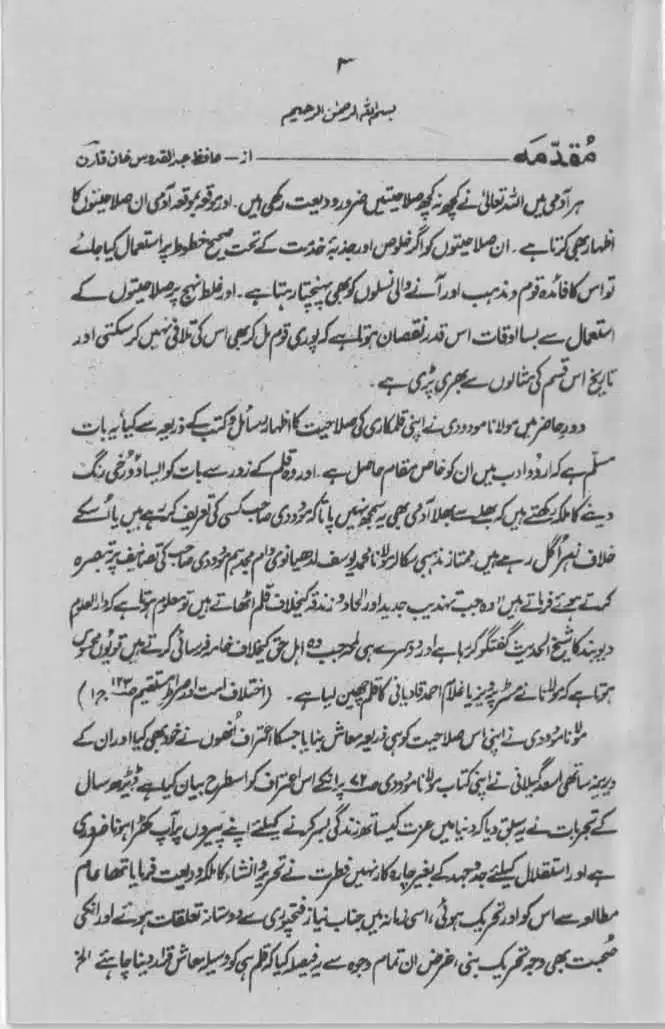 ۳
بسم اللہ الرحمٰن الرحیم
مُقدّمہ ــــــــــ از ــ حافظ عبدالقدوس خان قارن
ہر آدمی میں اللہ تعالیٰ نے کچھ نہ کچھ صلاحیتیں ضرور ودیعت رکھی ہیں۔ اور موقعہ بموقعہ آدمی ان صلاحیتوں کا
اظہار بھی کرتا ہے۔ ان صلاحیتوں کو اگر خلوص اور جذبۂ خدمت کے تحت صحیح خطوط پر استعمال کیا جائے
تو اس کا فائدہ قوم و مذہب اور آنے والی نسلوں کو بھی پہنچتا رہتا ہے۔ اور غلط نہج پر صلاحیتوں کے
استعمال سے بسا اوقات اس قدر نقصان ہوتا ہے کہ پوری قوم مل کر بھی اس کی تلافی نہیں کر سکتی اور
تاریخ اس قسم کی مثالوں سے بھری پڑی ہے۔
دورِ حاضر میں مولانا مودودی نے اپنی قلمکاری کی صلاحیت کا اظہار رسائل و کتب کے ذریعہ سے کیا یہ بات
مسلّم ہے کہ اردو ادب میں ان کو خاص مقام حاصل ہے۔ اور وہ قلم کے زور سے بات کو ایسا دو رُخی رنگ
دینے کا ملکہ رکھتے ہیں کہ بھلے سے بھلا آدمی بھی یہ سمجھ نہیں پاتا کہ مودودی صاحب کسی کی تعریف کر رہے ہیں یا اسکے
خلاف زہر اُگل رہے ہیں ممتاز مذہبی سکالر مولانا محمد یوسف لدھیانوی دام مجدہم مودودی صاحب کی تصانیف پر تبصرہ
کرتے ہوئے فرماتے ہیں "وہ جب تہذیب جدید اور الحاد و زندقہ کیخلاف قلم اٹھاتے ہیں تو معلوم ہوتا ہے کہ دارالعلوم
دیوبند کا شیخ الحدیث گفتگو کر رہا ہے اور دوسرے ہی لمحہ جب وہ اہل حق کیخلاف خامہ فرسائی کرتے ہیں تو یوں محسوس
ہوتا ہے کہ مولانا نے مسٹر پرویز یا غلام احمد قادیانی کا قلم چھین لیا ہے۔ (اختلاف امت اور صراط مستقیم صـ ۱۲۳ ج ۱)
مولانا مودودی نے اپنی اس صلاحیت کو ہی ذریعہ معاش بنایا جسکا اعتراف اُنھوں نے خود بھی کیا اور ان کے
دیرینہ ساتھی اسعد گیلانی نے اپنی کتاب مولانا مودودی صـ ۷۲ پر انکے اس اعتراف کو اسطرح بیان کیا ہے ڈیڑھ سال
کے تجربات نے یہ سبق دیا کہ دنیا میں عزت کیساتھ زندگی بسر کرنے کیلئے اپنے پیروں پر آپ کھڑا ہونا ضروری
ہے اور استقلال کیلئے جدوجہد کے بغیر چارہ کار نہیں فطرت نے تحریر و انشاء کا ملکہ ودیعت فرمایا تھا عام
مطالعہ سے اس کو اور تحریک ہوئی، اسی زمانہ میں جناب نیاز فتحپوری سے دوستانہ تعلقات ہوئے اور انکی
صُحبت بھی وجہ تحریک بنی، غرض ان تمام وجوہ سے یہ فیصلہ کیا کہ قلم ہی کو وسیلہ معاش قرار دینا چاہئے الخ